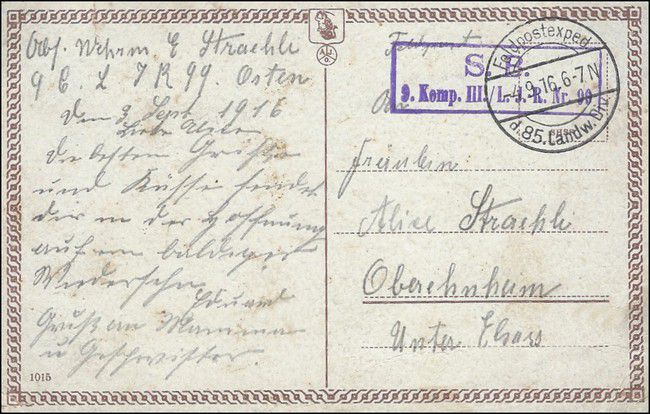 Abs. Wehrm. E Straehle
9 C. L I R 99 Osten
Den 3 Sept 1916
Liebe Alise
Die besten Grüße
und Küsse sendet
dir in der Hoffnung
auf ein baldiges
Wiedersehn
Eduard
Gruß an Mamma
u Geschwister.
1015
Feldpost
S. B.
9. Komp. III./L.-I.-R. Nr. 99
Feldpostexped.
4.9.16.6-7N
d.85.Landw.Div.
An
Fräulein
Alise Straehle
Oberehnheim
Unter Elsass